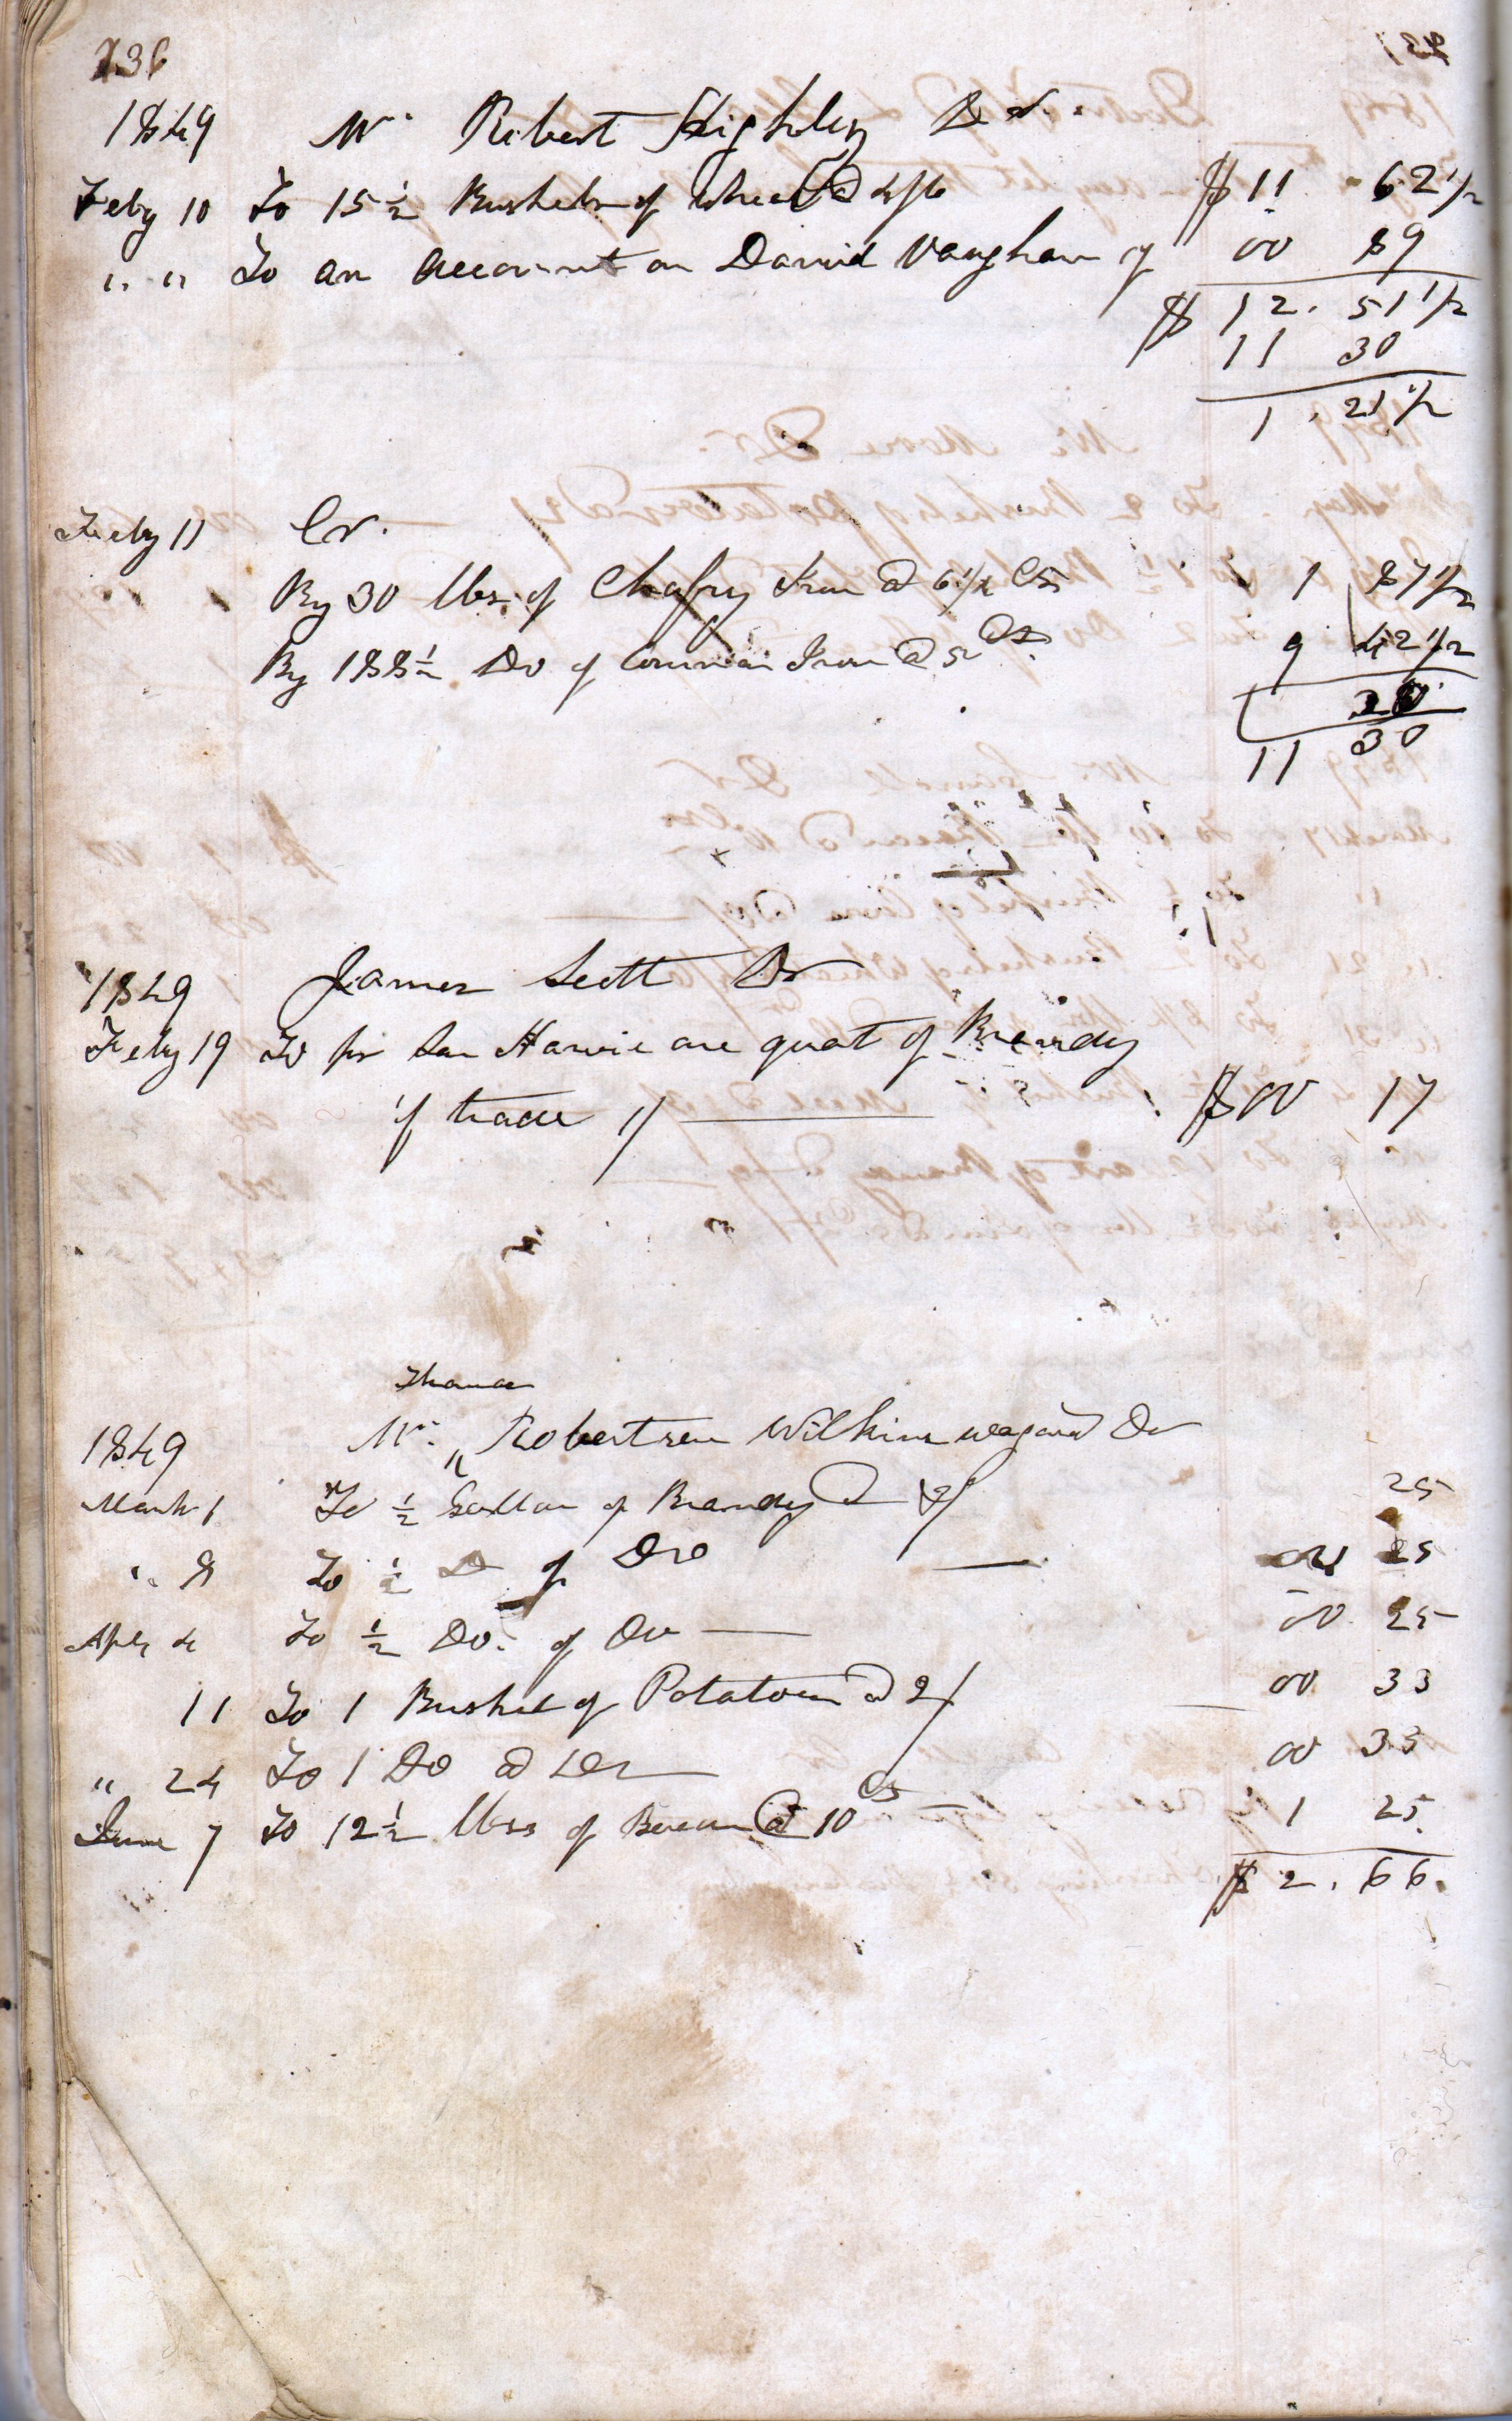 236
1849 Mr. Robert Highley Dr.
Feby 10 To 15 1/2 Bushels of wheat @ 4/6 $ 11 62 1/2
" " To an account on David Vaughan of 00 89
$ 12. 51 1/2
11 30
1 . 21 1/2
Feby 11 Cr.
By 30 lbs. of Chafry Iron @ 6 1/4 Cts 1 87 1/2
By 188 1/2 Do of Common Iron @ 5 Cts. 9 42 1/2
11 30
1849 James Scott Dr
Feby 19 To pr Son Harvie one quat of Brandy
if trade 1/ $ 00 17
Thomas
1849 Mr. " Robertson Wilkins Dr
March 1 To 1/2 Gallon of Brandy @ 25
" 8 To 1/2 D of Dro 00 25
Aply 4 To 1/2 Do. of Do 00 25
11 To 1 Bushel of Potatoes @ 2/ 00 33
" 24 To 1 Do @ Do 00 33
June 7 To 12 1/2 lbss of Bacon @ 10 Cts 1 25.
$ 2. 66.